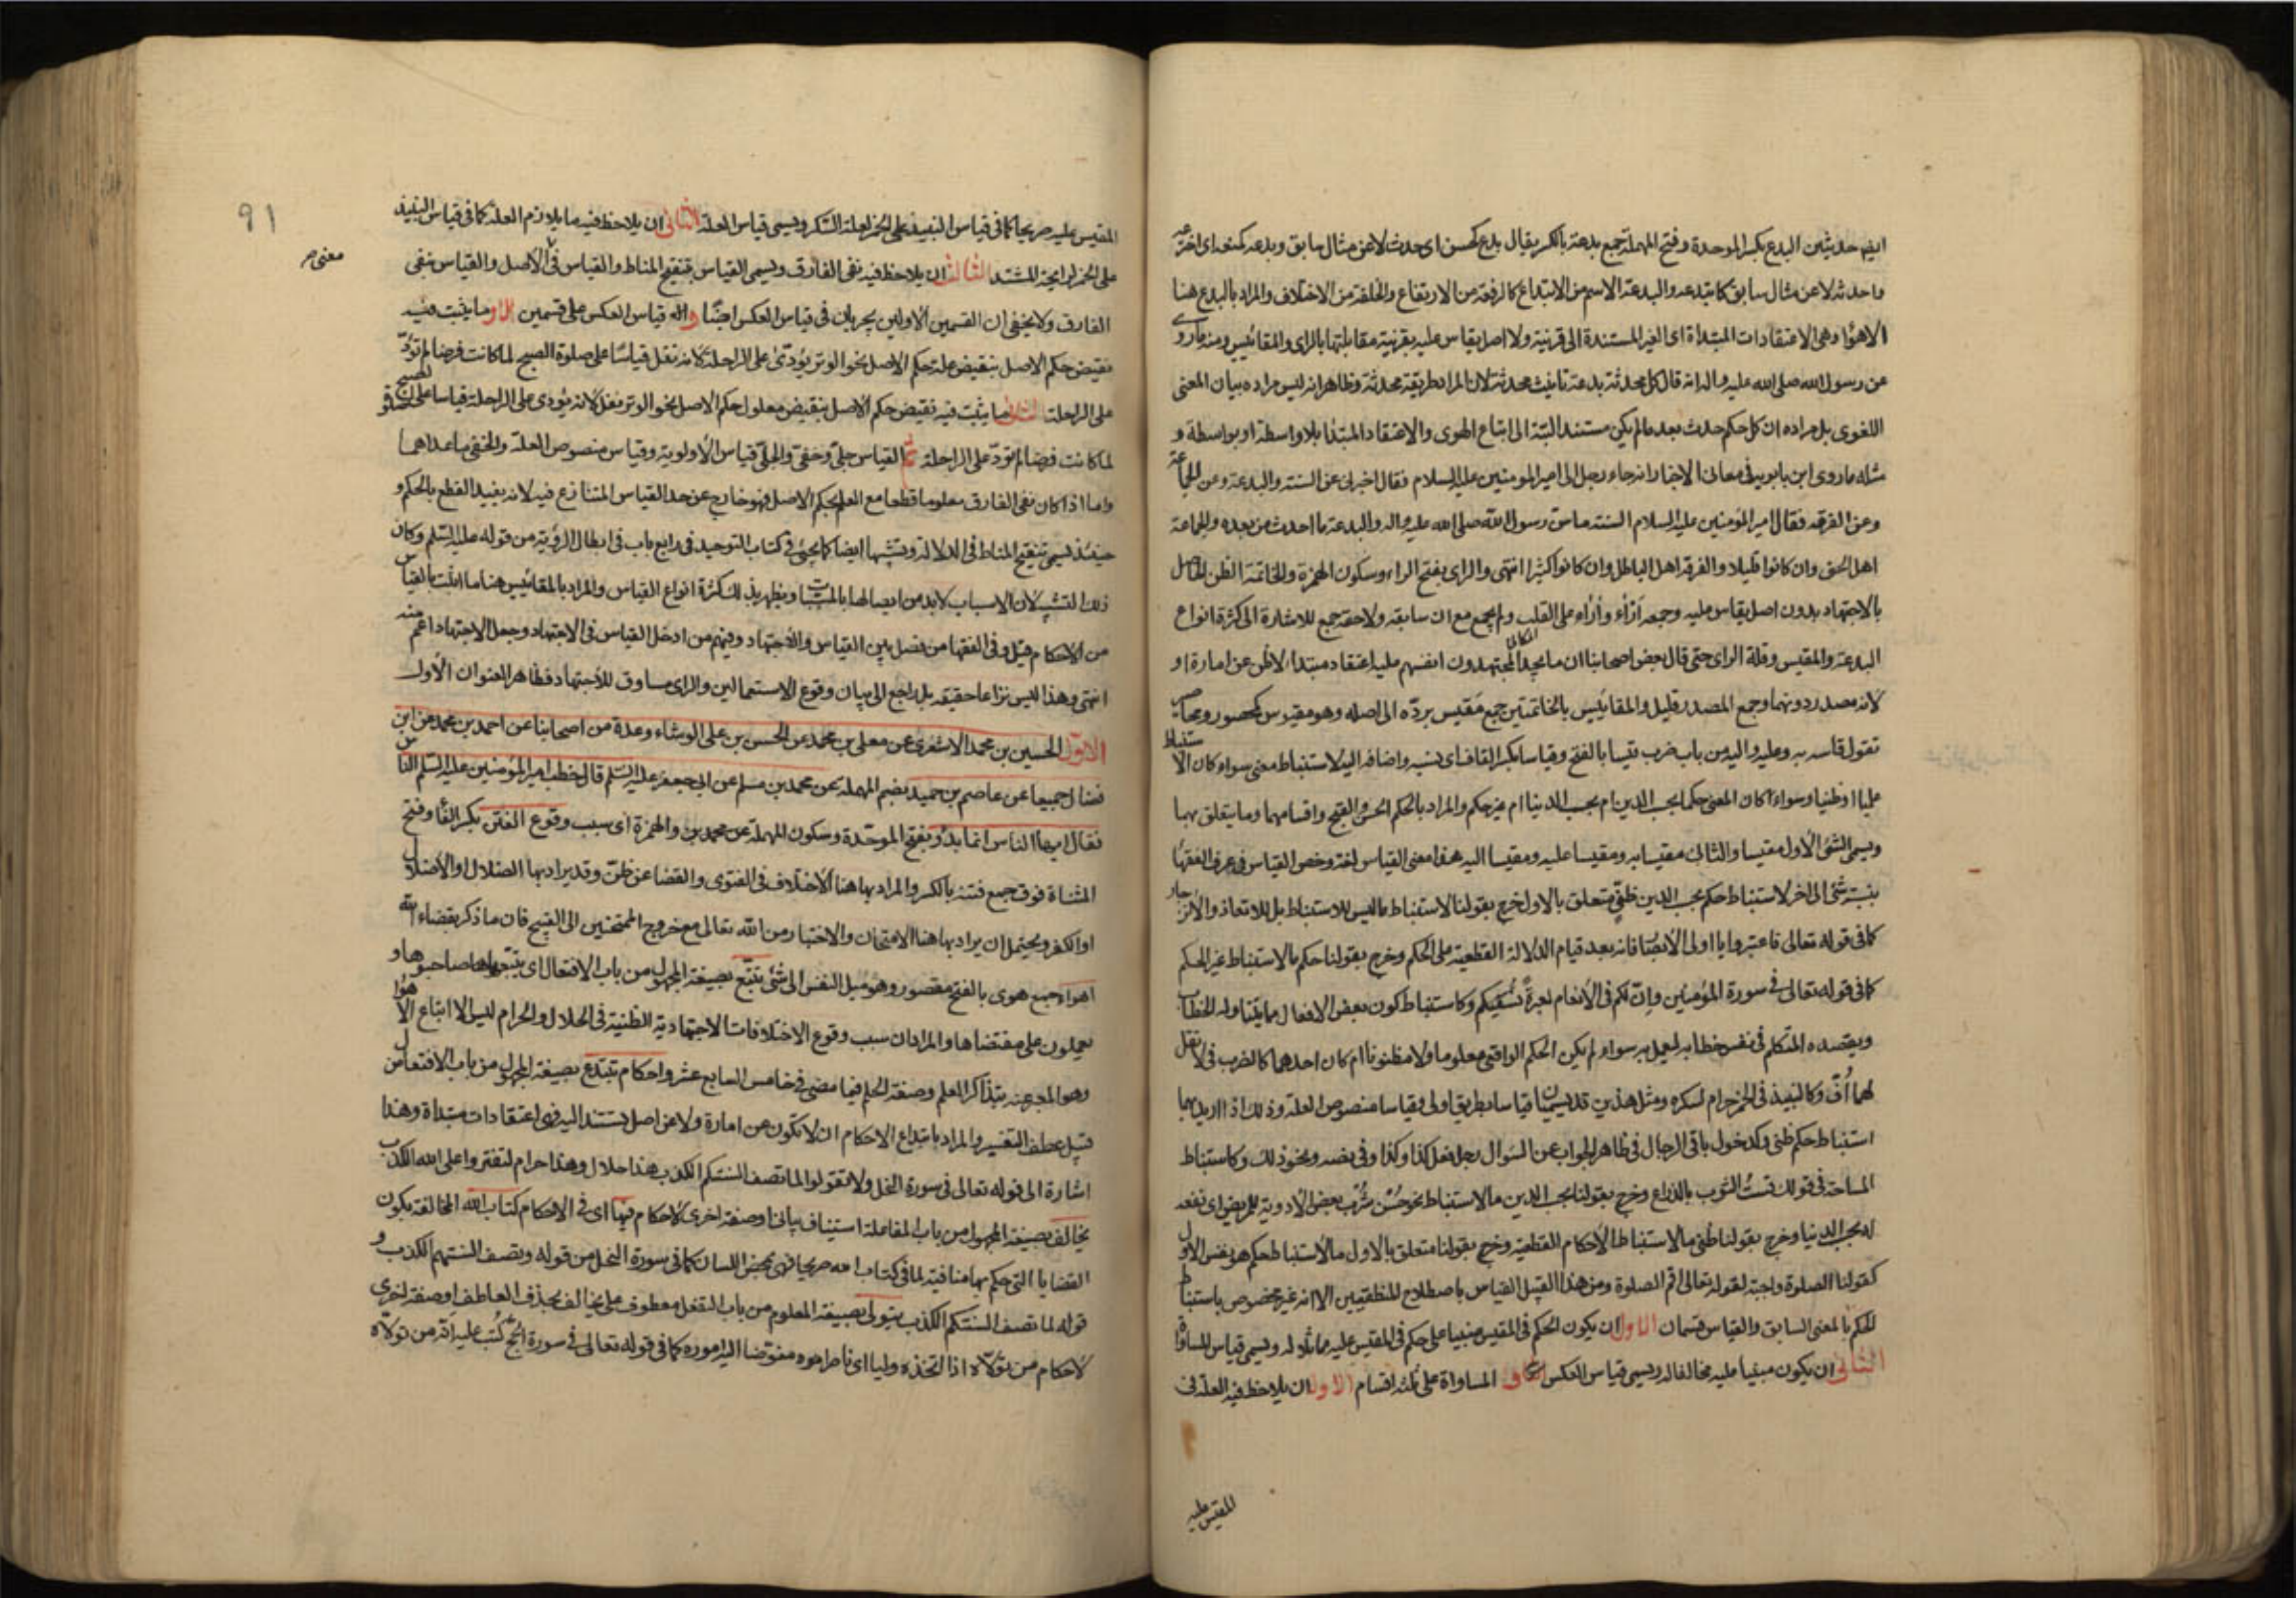 فيه حديثين البدع بكسر الموحدة وفتح المهملة جمع بدعة بالكسر يقال بدع كحسن اي حدث لا عن مثال سابق وبدعه كمنعه اي اخترعه
واحدثه لا عن مثال سابق كابتدعه والبدعة الاسم من الابتداع كالرفعة من الارتفاع والخلفة من الاختلاف والمراد بالبدع هنا
الاهواء وهي الاعتقادات المبتداة اي الغير المستندة الى قرينة ولا اصل يقاس عليه بقرينة مقابلتها بالراى والمقائيس ومنه ما روى
عن رسول الله صلى الله عليه واله انه قال كل محدثة بدعة تانيث محدثة لان المراد طريقة محدثة وظاهر انه ليس مراده بيان المعنى
اللغوى بل مراده ان كل حكم حدث بعد ما لم يكن مستند البتة الى اتباع الهوى والاعتقاد المبتدا بلا واسطة او بواسطة و
مثله ما روى ابن بابويه في معانى الاخبار انه جاء رجل الى امير المومنين عليه السلام فقال اخبرنى عن السنة والبدعة وعن الجماعة
وعن الفرقة فقال امير المؤمنين عليه السلام السنة ما سن رسول الله صلى الله عليه واله والبدعة ما احدث من بعده والجماعة
اهل الحق وان كانوا قليلا والفرقة اهل الباطل وان كانوا كثيرا انتهى والراى بفتح الراء وسكون الهمزة والخاتمة الظن الحاصل
بالاجتهاد بدون اصل يقاس عليه وجمعه اراء وأراء على القلب ولم يجمع مع ان سابقه ولاحقه جمع للاشارة الى كثرة انواع
البدعة والمقيس وقلة الراى حتى قال بعض اصحابنا ان ما يجد المجتهدون انفسهم عليه اعتقاد مبتدا لا ظن عن امارة او
لانه مصدر دونهما وجمع المصدر قليل والمقائيس بالخاتمتين جمع مقيس برده الى اصله وهو مقيوس كمحصور ومحاصير
تقول قاسه به وعليه واليه من باب ضرب قيسا بالفتح وقياسا بكسر القاف اى نسبه واضافه اليه لاستنباط معنى سواء كان الاستنباط
علميا او ظنيا وسواء كان المعنى حكما بحسب الدين ام بحسب الدنيا ام غير حكم والمراد بالحكم الحسن والقبح واقسامهما وما يتعلق بهما
ويسمى الشئ الاول مقيسا والثانى مقيسا به ومقيسا عليه ومقيسا اليه هذا معنى القياس لغة وخص القياس في عرف الفقهاء
بنسبة شئ الى اخر لاستنباط حكم بحسب الدين ظنى متعلق بالاول فخرج بقولنا لاستنباط ما ليس للاستنباط بل للاتعاظ والانزجار
كما فى قوله تعالى فاعتبروا يا اولى الابصار فانه بعد قيام الدلالة القطعية على الحكم وخرج بقولنا حكم ما لاستنباط غير الحكم
كما فى قوله تعالى في سورة المؤمنين وان لكم في الأنعام لعبرة نسقيكم وكاستنباط كون بعض الافعال مما يتناوله الخطاب
ويقصده المتكلم في نفس خطابه ليعمل به سواء لم يكن الحكم الواقعى معلوما ولا مظنونا ام كان احدهما كالضرب في لا تقل
لهما اف وكالنبيذ في الخمر حرام لسكره ومثل هذين قد يسميان قياسا بطريق اولى وقياسا منصوص العلة وذلك اذا اريد بهما
استنباط حكم ظنى وكدخول باقى الرجال في ظاهر الجواب عن السؤال رجل فعل كذا وكذا وفى نفسه ونحو ذلك وكاستنباط
المساحة في قولك قست الثوب بالذراع وخرج بقولنا بحسب الدين ما لاستنباط نحو حسن شرب بعض الادوية للمريض اى نفعه
له بحسب الدنيا وخرج بقولنا ظنى ما لاستنباط الاحكام القطعية وخرج بقولنا متعلق بالاول ما لاستنباط حكم هو نفس الاول
كقولنا الصلوة واجبة لقوله تعالى اقم الصلوة ومن هذا القبيل القياس باصطلاح المنطقيين الا انه غير مخصوص باستنباط
الحكم بالمعنى السابق والقياس قسمان الاول ان يكون الحكم في المقيس مبنيا على حكم في المقيس عليه مماثلا له ويسمى قياس المساواة
الثانى ان يكون مبنيا عليه مخالفا له ويسمى قياس العكس المساواة على ثلثة اقسام الاول ان يلاحظ فيه العلة في
المقيس عليه
91
المقيس عليه صريحا كما في قياس النبيذ على الخمر لعلة السكر ويسمى قياس العلة الثانى ان يلاحظ فيه ما يلازم العلة كما في قياس النبيذ
على الخمر لرايحة المشتد الثالث ان يلاحظ فيه نفى الفارق ويسمى القياس بتنقيح المناط والقياس في الاصل والقياس بنفى
الفارق ولا يخفى ان القسمين الاولين يجريان في قياس العكس ايضا قياس العكس على قسمين الاول ما يثبت فيه
نقيض حكم الاصل بنقيض علة حكم الاصل نحو الوتر يؤدى على الراحلة لانه نفل قياسا على صلوة الصبح لما كانت فرضا لم تؤد
على الراحلة الثانى ما يثبت فيه نقيض حكم الاصل بنقيض معلول حكم الاصل نحو الوتر نفل لانه يؤدى على الراحلة قياسا على صلوة الصبح
لما كانت فرضا لم تؤد على الراحلة ثم القياس جلى وخفى والجلى قياس الاولوية وقياس منصوص العلة والخفى ما عداهما
واما اذا كان نفى الفارق معلوما قطعا مع العلم بحكم الاصل فهو خارج عن حد القياس المتنازع فيه لانه يفيد القطع بالحكم و
حينئذ يسمى تنقيح المناط في الدلالة وتشبها ايضا كما يجئ في كتاب التوحيد في رابع باب في ابطال الرؤية من قوله عليه السلم وكان
ذلك التشبيه لان الاسباب لابد من اتصالها بالمسببات ويظهر بذلك كثرة انواع القياس والمراد بالمقائيس هنا ما اثبت بالقياس
من الاحكام قيل وفى الفقها من فصل بين القياس والاجتهاد وفيهم من ادخل القياس في الاجتهاد وجعل الاجتهاد اعم منه
انتهى وهذا ليس نزاعا حقيقة بل راجع الى بيان وقوع الاستعمالين والراى مساوق للاجتهاد فظاهر العنوان الأول
الاول الحسين بن محمد الاشعرى عن معلى بن محمد عن الحسن بن على الوشاء وعدة من اصحابنا عن احمد بن محمد عن ابن
فضال جميعا عن عاصم بن حميد بضم المهملة عن محمد بن مسلم عن ابى جعفر عليه السلم قال خطب امير المؤمنين عليه السلم الناس
فقال ايها الناس انما بدؤ بفتح الموحدة وسكون المهملة والهمزة اى سبب وقوع الفتن بكسر الفا وفتح
المثناة فوق جمع فتنة بالكسر والمراد بها هنا الاختلاف في الفتوى والقضا عن ظن وقد يراد بها الضلال او الاضلال
او الكفر ويحتمل ان يراد بها هنا الامتحان والاختبار من الله تعالى مع خروج الممتحنين الى القبيح فان ما ذكر بقضاء الله
اهواء جمع هوى بالفتح مقصور وهو ميل النفس الى شئ تتبع بصيغة المجهول من باب الافتعال اى يتبعها صاحبوها و
يعملون على مقتضاها والمراد ان سبب وقوع الاختلافات الاجتهادية الظنية في الحلال والحرام ليس الا اتباع الاهواء
وهو المعبر عنه بتذاكر العلم وصفة الحلم فيما مضى في خامس السابع عشر واحكام تبتدع بصيغة المجهول من باب الافتعال من
قبيل عطف التفسير والمراد بابتداع الاحكام ان لا تكون عن امارة ولا عن اصل يستند اليه فهى اعتقادات مبتداة وهذا
اشارة الى قوله تعالى في سورة النحل ولا تقولوا لما تصف السنتكم الكذب هذا حلال وهذا حرام لتفتروا على الله الكذب
يخالف بصيغة المجهول من باب المفاعلة استيناف بيانى او صفة اخرى لاحكام فيها اى في الاحكام كتاب الله المخالفة بكون
القضايا التى حكم بها منافية لما في كتاب الله صريحا فهى بمحض اللسان كما في سورة النحل من قوله وتصف السنتهم الكذب و
قوله لما تصف السنتكم الكذب يتولى بصيغة المعلوم من باب التفعل معطوف على يخالف بحذف العاطف او صفة اخرى
لاحكام من تولاه اذا اتخذه وليا اى ناصرا امره مفوضا اليه اموره كما في قوله تعالى في سورة الحج كتب عليه انه من تولاه